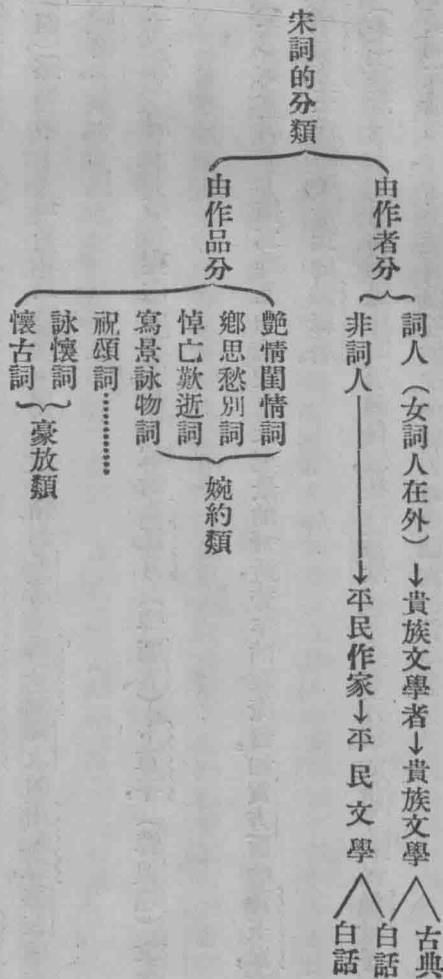 宋詞的分類
由作者分
詞人（女詞人在外）→貴族文學者→貴族文學
古典
白話
非詞人→平民作家→平民文學
白話
由作品分
艷情閨情詞
鄉思愁別詞
悼亡歎逝詞
寫景詠物詞
婉約類
祝頌詞…………
詠懷詞
懷古詞
豪放類